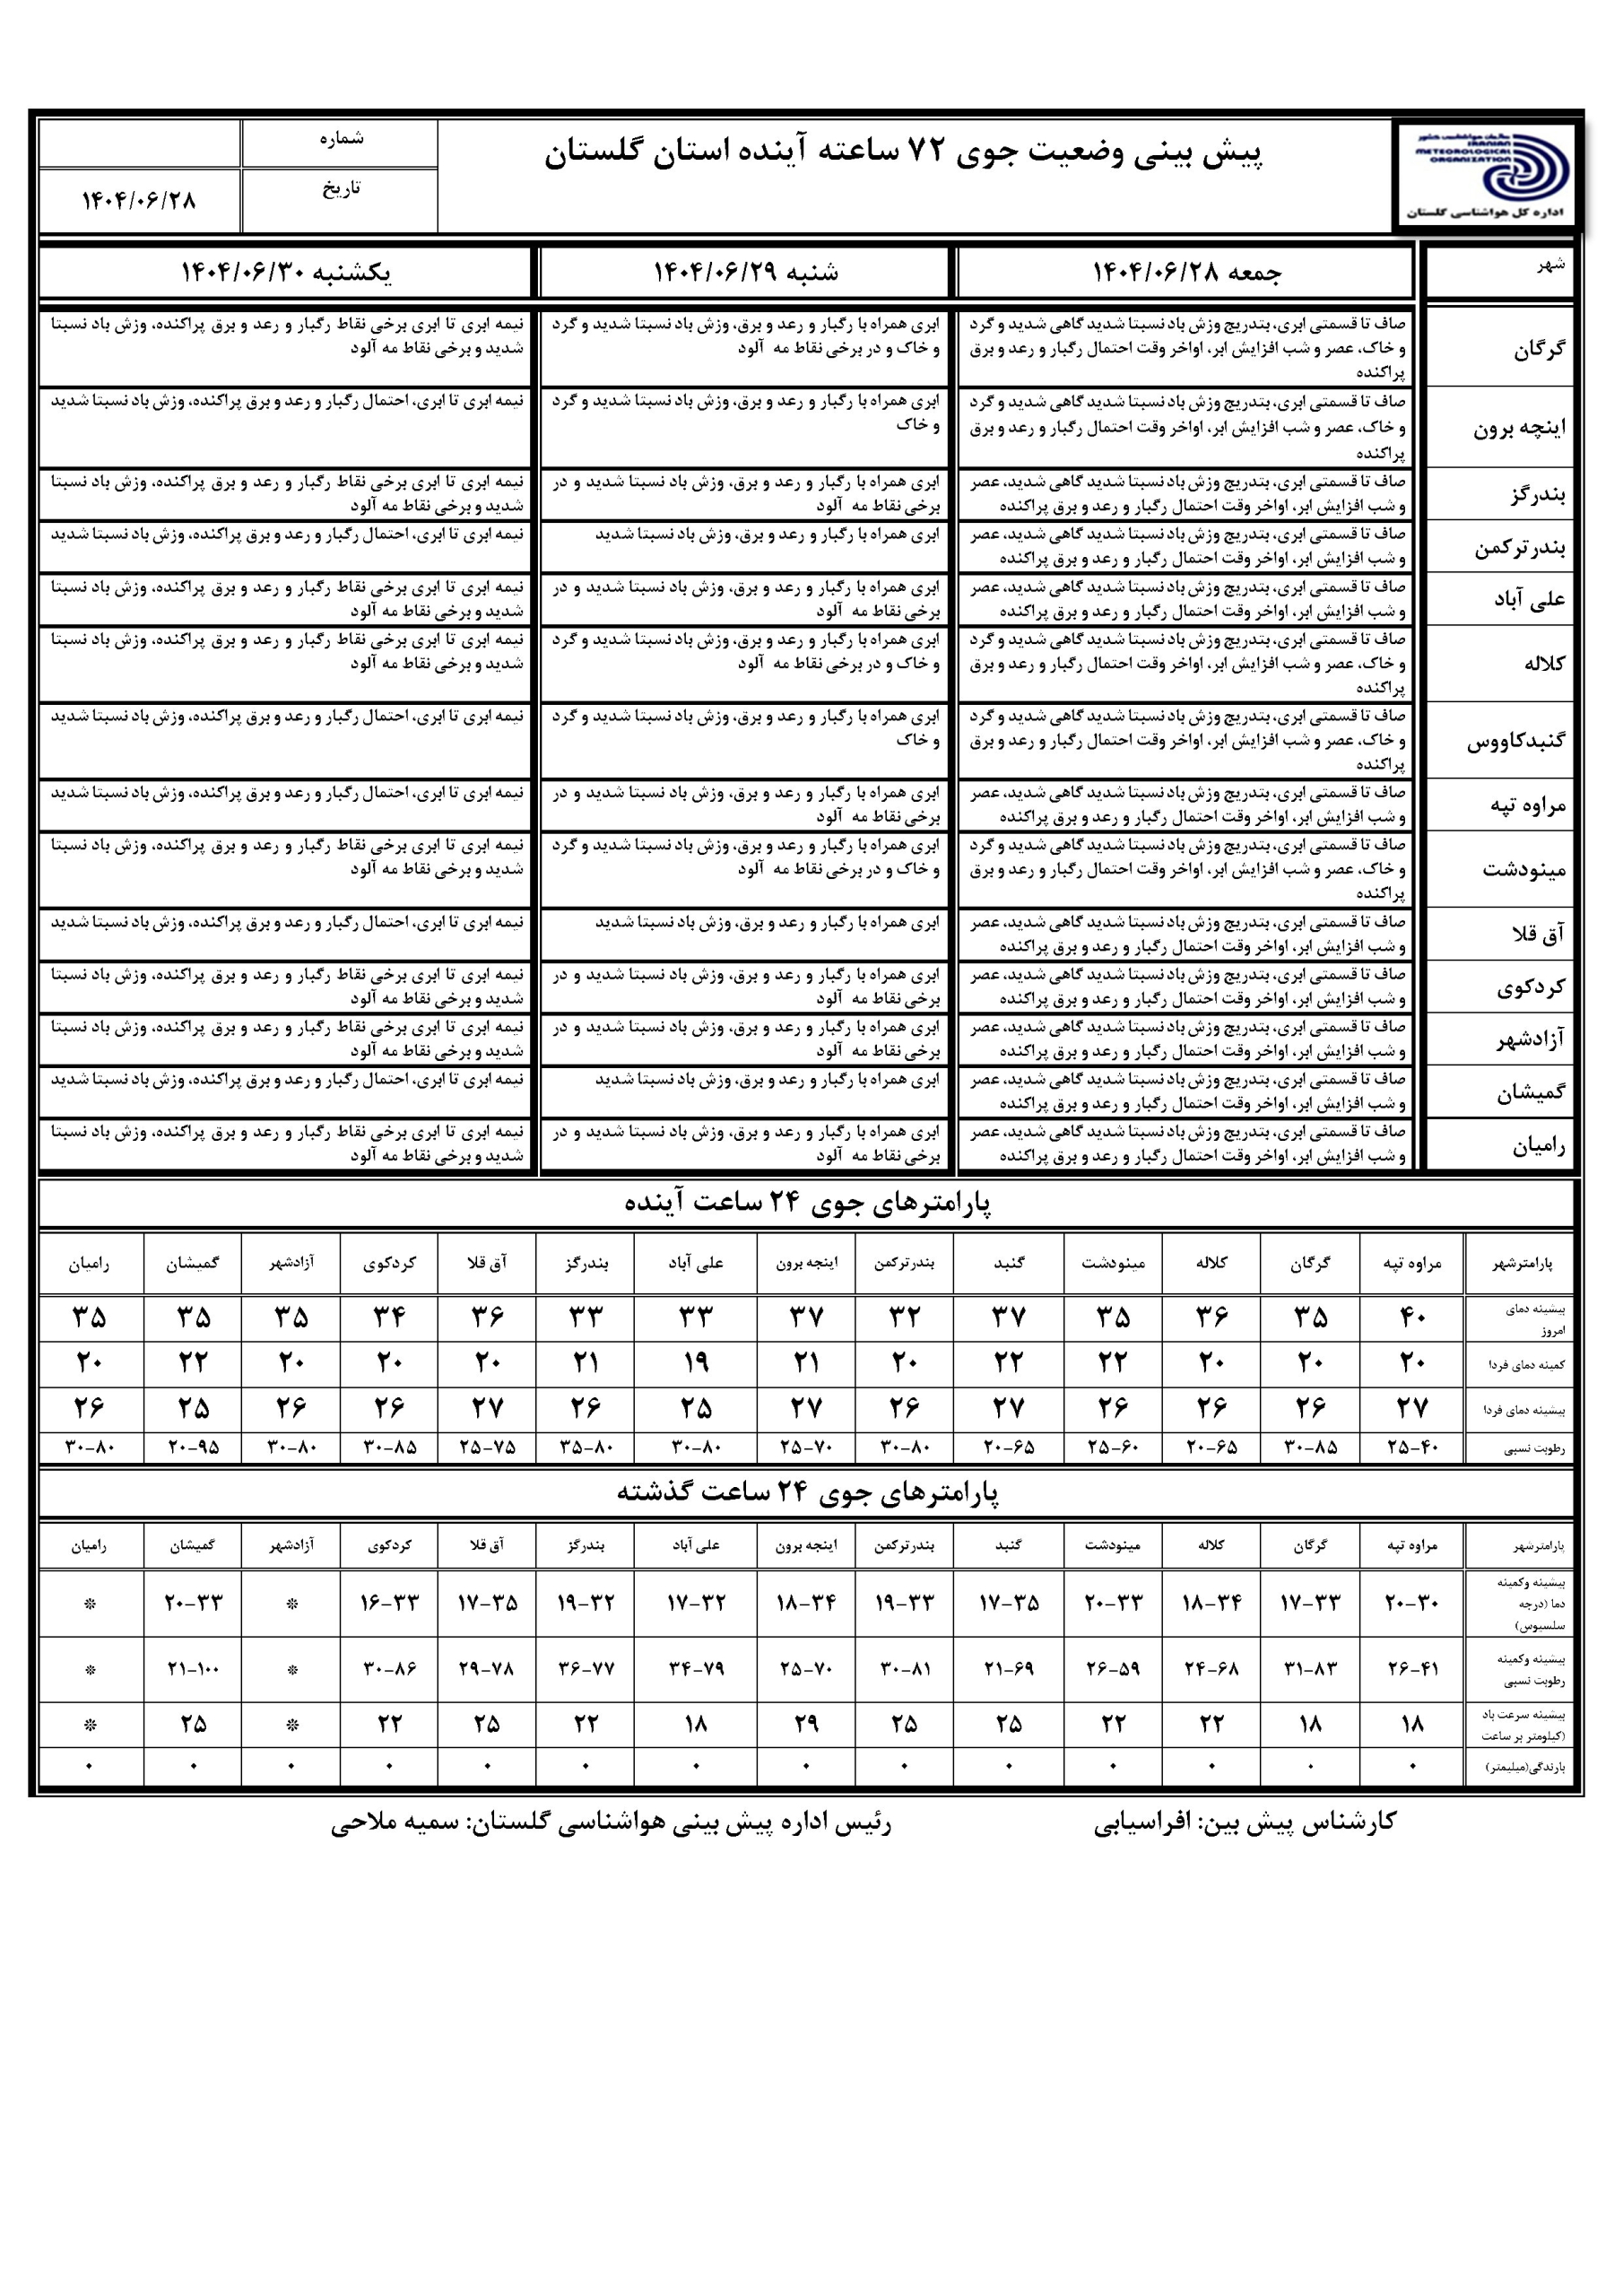 سازمان هواشناسی کشور
IRANIAN
METEOROLOGICAL
ORGANIZATION
اداره کل هواشناسی گلستان
پیش بینی وضعیت جوی ۷۲ ساعته آینده استان گلستان
شماره
تاریخ ۱۴۰۴/۰۶/۲۸
شهر جمعه ۱۴۰۴/۰۶/۲۸ شنبه ۱۴۰۴/۰۶/۲۹ یکشنبه ۱۴۰۴/۰۶/۳۰
گرگان
صاف تا قسمتی ابری، بتدریج وزش باد نسبتا شدید گاهی شدید و گرد
و خاک، عصر و شب افزایش ابر، اواخر وقت احتمال رگبار و رعد و برق
پراکنده
ابری همراه با رگبار و رعد و برق، وزش باد نسبتا شدید و گرد
و خاک و در برخی نقاط مه آلود
نیمه ابری تا ابری برخی نقاط رگبار و رعد و برق پراکنده، وزش باد نسبتا
شدید و برخی نقاط مه آلود
اینچه برون
صاف تا قسمتی ابری، بتدریج وزش باد نسبتا شدید گاهی شدید و گرد
و خاک، عصر و شب افزایش ابر، اواخر وقت احتمال رگبار و رعد و برق
پراکنده
ابری همراه با رگبار و رعد و برق، وزش باد نسبتا شدید و گرد
و خاک
نیمه ابری تا ابری، احتمال رگبار و رعد و برق پراکنده، وزش باد نسبتا شدید
بندرگز
صاف تا قسمتی ابری، بتدریج وزش باد نسبتا شدید گاهی شدید، عصر
و شب افزایش ابر، اواخر وقت احتمال رگبار و رعد و برق پراکنده
ابری همراه با رگبار و رعد و برق، وزش باد نسبتا شدید و در
برخی نقاط مه آلود
نیمه ابری تا ابری برخی نقاط رگبار و رعد و برق پراکنده، وزش باد نسبتا
شدید و برخی نقاط مه آلود
بندرترکمن
صاف تا قسمتی ابری، بتدریج وزش باد نسبتا شدید گاهی شدید، عصر
و شب افزایش ابر، اواخر وقت احتمال رگبار و رعد و برق پراکنده
ابری همراه با رگبار و رعد و برق، وزش باد نسبتا شدید
نیمه ابری تا ابری، احتمال رگبار و رعد و برق پراکنده، وزش باد نسبتا شدید
علی آباد
صاف تا قسمتی ابری، بتدریج وزش باد نسبتا شدید گاهی شدید، عصر
و شب افزایش ابر، اواخر وقت احتمال رگبار و رعد و برق پراکنده
ابری همراه با رگبار و رعد و برق، وزش باد نسبتا شدید و در
برخی نقاط مه آلود
نیمه ابری تا ابری برخی نقاط رگبار و رعد و برق پراکنده، وزش باد نسبتا
شدید و برخی نقاط مه آلود
کلاله
صاف تا قسمتی ابری، بتدریج وزش باد نسبتا شدید گاهی شدید و گرد
و خاک، عصر و شب افزایش ابر، اواخر وقت احتمال رگبار و رعد و برق
پراکنده
ابری همراه با رگبار و رعد و برق، وزش باد نسبتا شدید و گرد
و خاک و در برخی نقاط مه آلود
نیمه ابری تا ابری برخی نقاط رگبار و رعد و برق پراکنده، وزش باد نسبتا
شدید و برخی نقاط مه آلود
گنبدکاووس
صاف تا قسمتی ابری، بتدریج وزش باد نسبتا شدید گاهی شدید و گرد
و خاک، عصر و شب افزایش ابر، اواخر وقت احتمال رگبار و رعد و برق
پراکنده
ابری همراه با رگبار و رعد و برق، وزش باد نسبتا شدید و گرد
و خاک
نیمه ابری تا ابری، احتمال رگبار و رعد و برق پراکنده، وزش باد نسبتا شدید
مراوه تپه
صاف تا قسمتی ابری، بتدریج وزش باد نسبتا شدید گاهی شدید، عصر
و شب افزایش ابر، اواخر وقت احتمال رگبار و رعد و برق پراکنده
ابری همراه با رگبار و رعد و برق، وزش باد نسبتا شدید و در
برخی نقاط مه آلود
نیمه ابری تا ابری، احتمال رگبار و رعد و برق پراکنده، وزش باد نسبتا شدید
مینودشت
صاف تا قسمتی ابری، بتدریج وزش باد نسبتا شدید گاهی شدید و گرد
و خاک، عصر و شب افزایش ابر، اواخر وقت احتمال رگبار و رعد و برق
پراکنده
ابری همراه با رگبار و رعد و برق، وزش باد نسبتا شدید و گرد
و خاک و در برخی نقاط مه آلود
نیمه ابری تا ابری برخی نقاط رگبار و رعد و برق پراکنده، وزش باد نسبتا
شدید و برخی نقاط مه آلود
آق قلا
صاف تا قسمتی ابری، بتدریج وزش باد نسبتا شدید گاهی شدید، عصر
و شب افزایش ابر، اواخر وقت احتمال رگبار و رعد و برق پراکنده
ابری همراه با رگبار و رعد و برق، وزش باد نسبتا شدید
نیمه ابری تا ابری، احتمال رگبار و رعد و برق پراکنده، وزش باد نسبتا شدید
کردکوی
صاف تا قسمتی ابری، بتدریج وزش باد نسبتا شدید گاهی شدید، عصر
و شب افزایش ابر، اواخر وقت احتمال رگبار و رعد و برق پراکنده
ابری همراه با رگبار و رعد و برق، وزش باد نسبتا شدید و در
برخی نقاط مه آلود
نیمه ابری تا ابری برخی نقاط رگبار و رعد و برق پراکنده، وزش باد نسبتا
شدید و برخی نقاط مه آلود
آزادشهر
صاف تا قسمتی ابری، بتدریج وزش باد نسبتا شدید گاهی شدید، عصر
و شب افزایش ابر، اواخر وقت احتمال رگبار و رعد و برق پراکنده
ابری همراه با رگبار و رعد و برق، وزش باد نسبتا شدید و در
برخی نقاط مه آلود
نیمه ابری تا ابری برخی نقاط رگبار و رعد و برق پراکنده، وزش باد نسبتا
شدید و برخی نقاط مه آلود
گمیشان
صاف تا قسمتی ابری، بتدریج وزش باد نسبتا شدید گاهی شدید، عصر
و شب افزایش ابر، اواخر وقت احتمال رگبار و رعد و برق پراکنده
ابری همراه با رگبار و رعد و برق، وزش باد نسبتا شدید
نیمه ابری تا ابری، احتمال رگبار و رعد و برق پراکنده، وزش باد نسبتا شدید
رامیان
صاف تا قسمتی ابری، بتدریج وزش باد نسبتا شدید گاهی شدید، عصر
و شب افزایش ابر، اواخر وقت احتمال رگبار و رعد و برق پراکنده
ابری همراه با رگبار و رعد و برق، وزش باد نسبتا شدید و در
برخی نقاط مه آلود
نیمه ابری تا ابری برخی نقاط رگبار و رعد و برق پراکنده، وزش باد نسبتا
شدید و برخی نقاط مه آلود
پارامترهای جوی ۲۴ ساعت آینده
پارامترشهر مراوه تپه گرگان کلاله مینودشت گنبد بندرترکمن اینچه برون علی آباد بندرگز آق قلا کردکوی آزادشهر گمیشان رامیان
بیشینه دمای
امروز
۴۰ ۳۵ ۳۶ ۳۵ ۳۷ ۳۲ ۳۷ ۳۳ ۳۳ ۳۶ ۳۴ ۳۵ ۳۵ ۳۵
کمینه دمای فردا ۲۰ ۲۰ ۲۰ ۲۲ ۲۲ ۲۰ ۲۱ ۱۹ ۲۱ ۲۰ ۲۰ ۲۰ ۲۲ ۲۰
بیشینه دمای فردا ۲۷ ۲۶ ۲۶ ۲۶ ۲۷ ۲۶ ۲۷ ۲۵ ۲۶ ۲۷ ۲۶ ۲۶ ۲۵ ۲۶
رطوبت نسبی ۲۵-۴۰ ۳۰-۸۵ ۲۰-۶۵ ۲۵-۶۰ ۲۰-۶۵ ۳۰-۸۰ ۲۵-۷۰ ۳۰-۸۰ ۳۵-۸۰ ۲۵-۷۵ ۳۰-۸۵ ۳۰-۸۰ ۲۰-۹۵ ۳۰-۸۰
پارامترهای جوی ۲۴ ساعت گذشته
پارامترشهر مراوه تپه گرگان کلاله مینودشت گنبد بندرترکمن اینچه برون علی آباد بندرگز آق قلا کردکوی آزادشهر گمیشان رامیان
بیشینه وکمینه
دما (درجه
سلسیوس)
۲۰-۳۰ ۱۷-۳۳ ۱۸-۳۴ ۲۰-۳۳ ۱۷-۳۵ ۱۹-۳۳ ۱۸-۳۴ ۱۷-۳۲ ۱۹-۳۲ ۱۷-۳۵ ۱۶-۳۳ * ۲۰-۳۳ *
بیشینه وکمینه
رطوبت نسبی
۲۶-۴۱ ۳۱-۸۳ ۲۴-۶۸ ۲۶-۵۹ ۲۱-۶۹ ۳۰-۸۱ ۲۵-۷۰ ۳۴-۷۹ ۳۶-۷۷ ۲۹-۷۸ ۳۰-۸۶ * ۲۱-۱۰۰ *
بیشینه سرعت باد
(کیلومتر بر ساعت
۱۸ ۱۸ ۲۲ ۲۲ ۲۵ ۲۵ ۲۹ ۱۸ ۲۲ ۲۵ ۲۲ * ۲۵ *
بارندگی(میلیمتر) ۰ ۰ ۰ ۰ ۰ ۰ ۰ ۰ ۰ ۰ ۰ ۰ ۰ ۰
کارشناس پیش بین: افراسیابی رئیس اداره پیش بینی هواشناسی گلستان: سمیه ملاحی